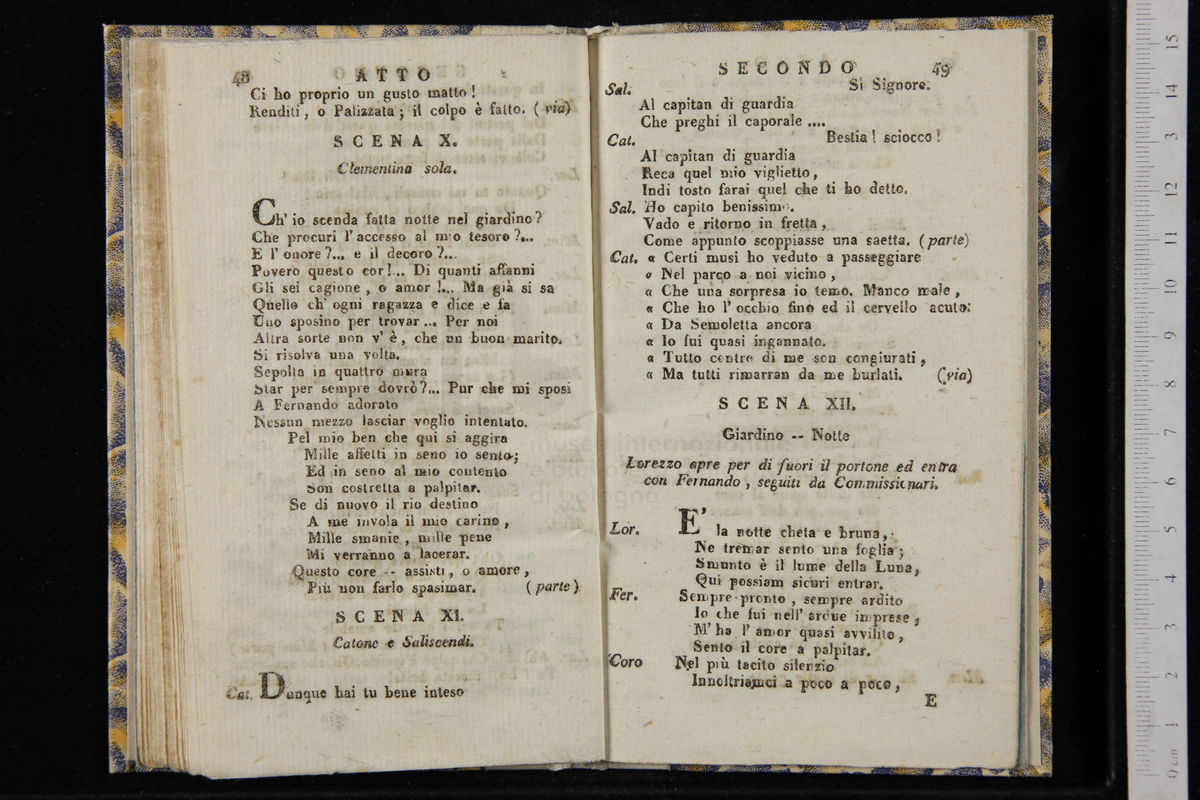 48 ATTO
Ci ho proprio un gusto matto!
Renditi, o Palizzata; il colpo è fatto. (via)
SCENA X.
Clementina sola.
Ch' io scenda fatta notte nel giardino?
Che procuri l' accesso al mio tesoro?...
E l' onore?... e il decoro?...
Povero questo cor!... Di quanti affanni
Gli sei cagione, o amor!... Ma già si sa
Quello ch' ogni ragazza e dice e fa
Uno sposino per trovar... Per noi
Altra sorte non v' è, che un buon marito.
Si risolva una volta.
Sepolta in quattro mura
Star per sempre dovrò?... Pur che mi sposi
A Fernando adorato
Nessun mezzo lasciar voglio intentato.
Pel mio ben che qui si aggira
Mille affetti in seno io sento;
Ed in seno al mio contento
Son costretta a palpitar.
Se di nuovo il rio destino
A me invola il mio carino,
Mille smanie, mille pene
Mi verranno a lacerar.
Questo core -- assisti, o amore,
Più non farlo spasimar. (parte)
SCENA XI.
Catone e Saliscendi.
Cat. Dunque hai tu bene inteso
SECONDO 49
Sal. Si Signore.
Al capitan di guardia
Che preghi il caporale ....
Cat. Bestia! sciocco!
Al capitan di guardia
Reca quel mio viglietto,
Indi tosto farai quel che ti ho detto.
Sal. Ho capito benissimo.
Vado e ritorno in fretta,
Come appunto scoppiasse una saetta. (parte)
Cat. « Certi musi ho veduto a passeggiare
« Nel parco a noi vicino,
« Che una sorpresa io temo. Manco male,
« Che ho l' occhio fino ed il cervello acuto:
« Da Semoletta ancora
« Io fui quasi ingannato.
« Tutto contro di me son congiurati,
« Ma tutti rimarran da me burlati. (via)
SCENA XII.
Giardino -- Notte
Lorezzo apre per di fuori il portone ed entra
con Fernando, seguiti da Commissionari.
Lor. E' la notte cheta e bruna,
Ne tremar sento una foglia;
Smunto è il lume della Luna,
Qui possiam sicuri entrar.
Fer. Sempre pronto, sempre ardito
Io che fui nell' ardue imprese,
M' ha l' amor quasi avvilito,
Sento il core a palpitar.
Coro Nel più tacito silenzio
Innoltriamci a poco a poco,
E
museo internazionale
di bologna
0 cm 1 2 3 4 5 6 7 8 9 10 11 12 13 14 15